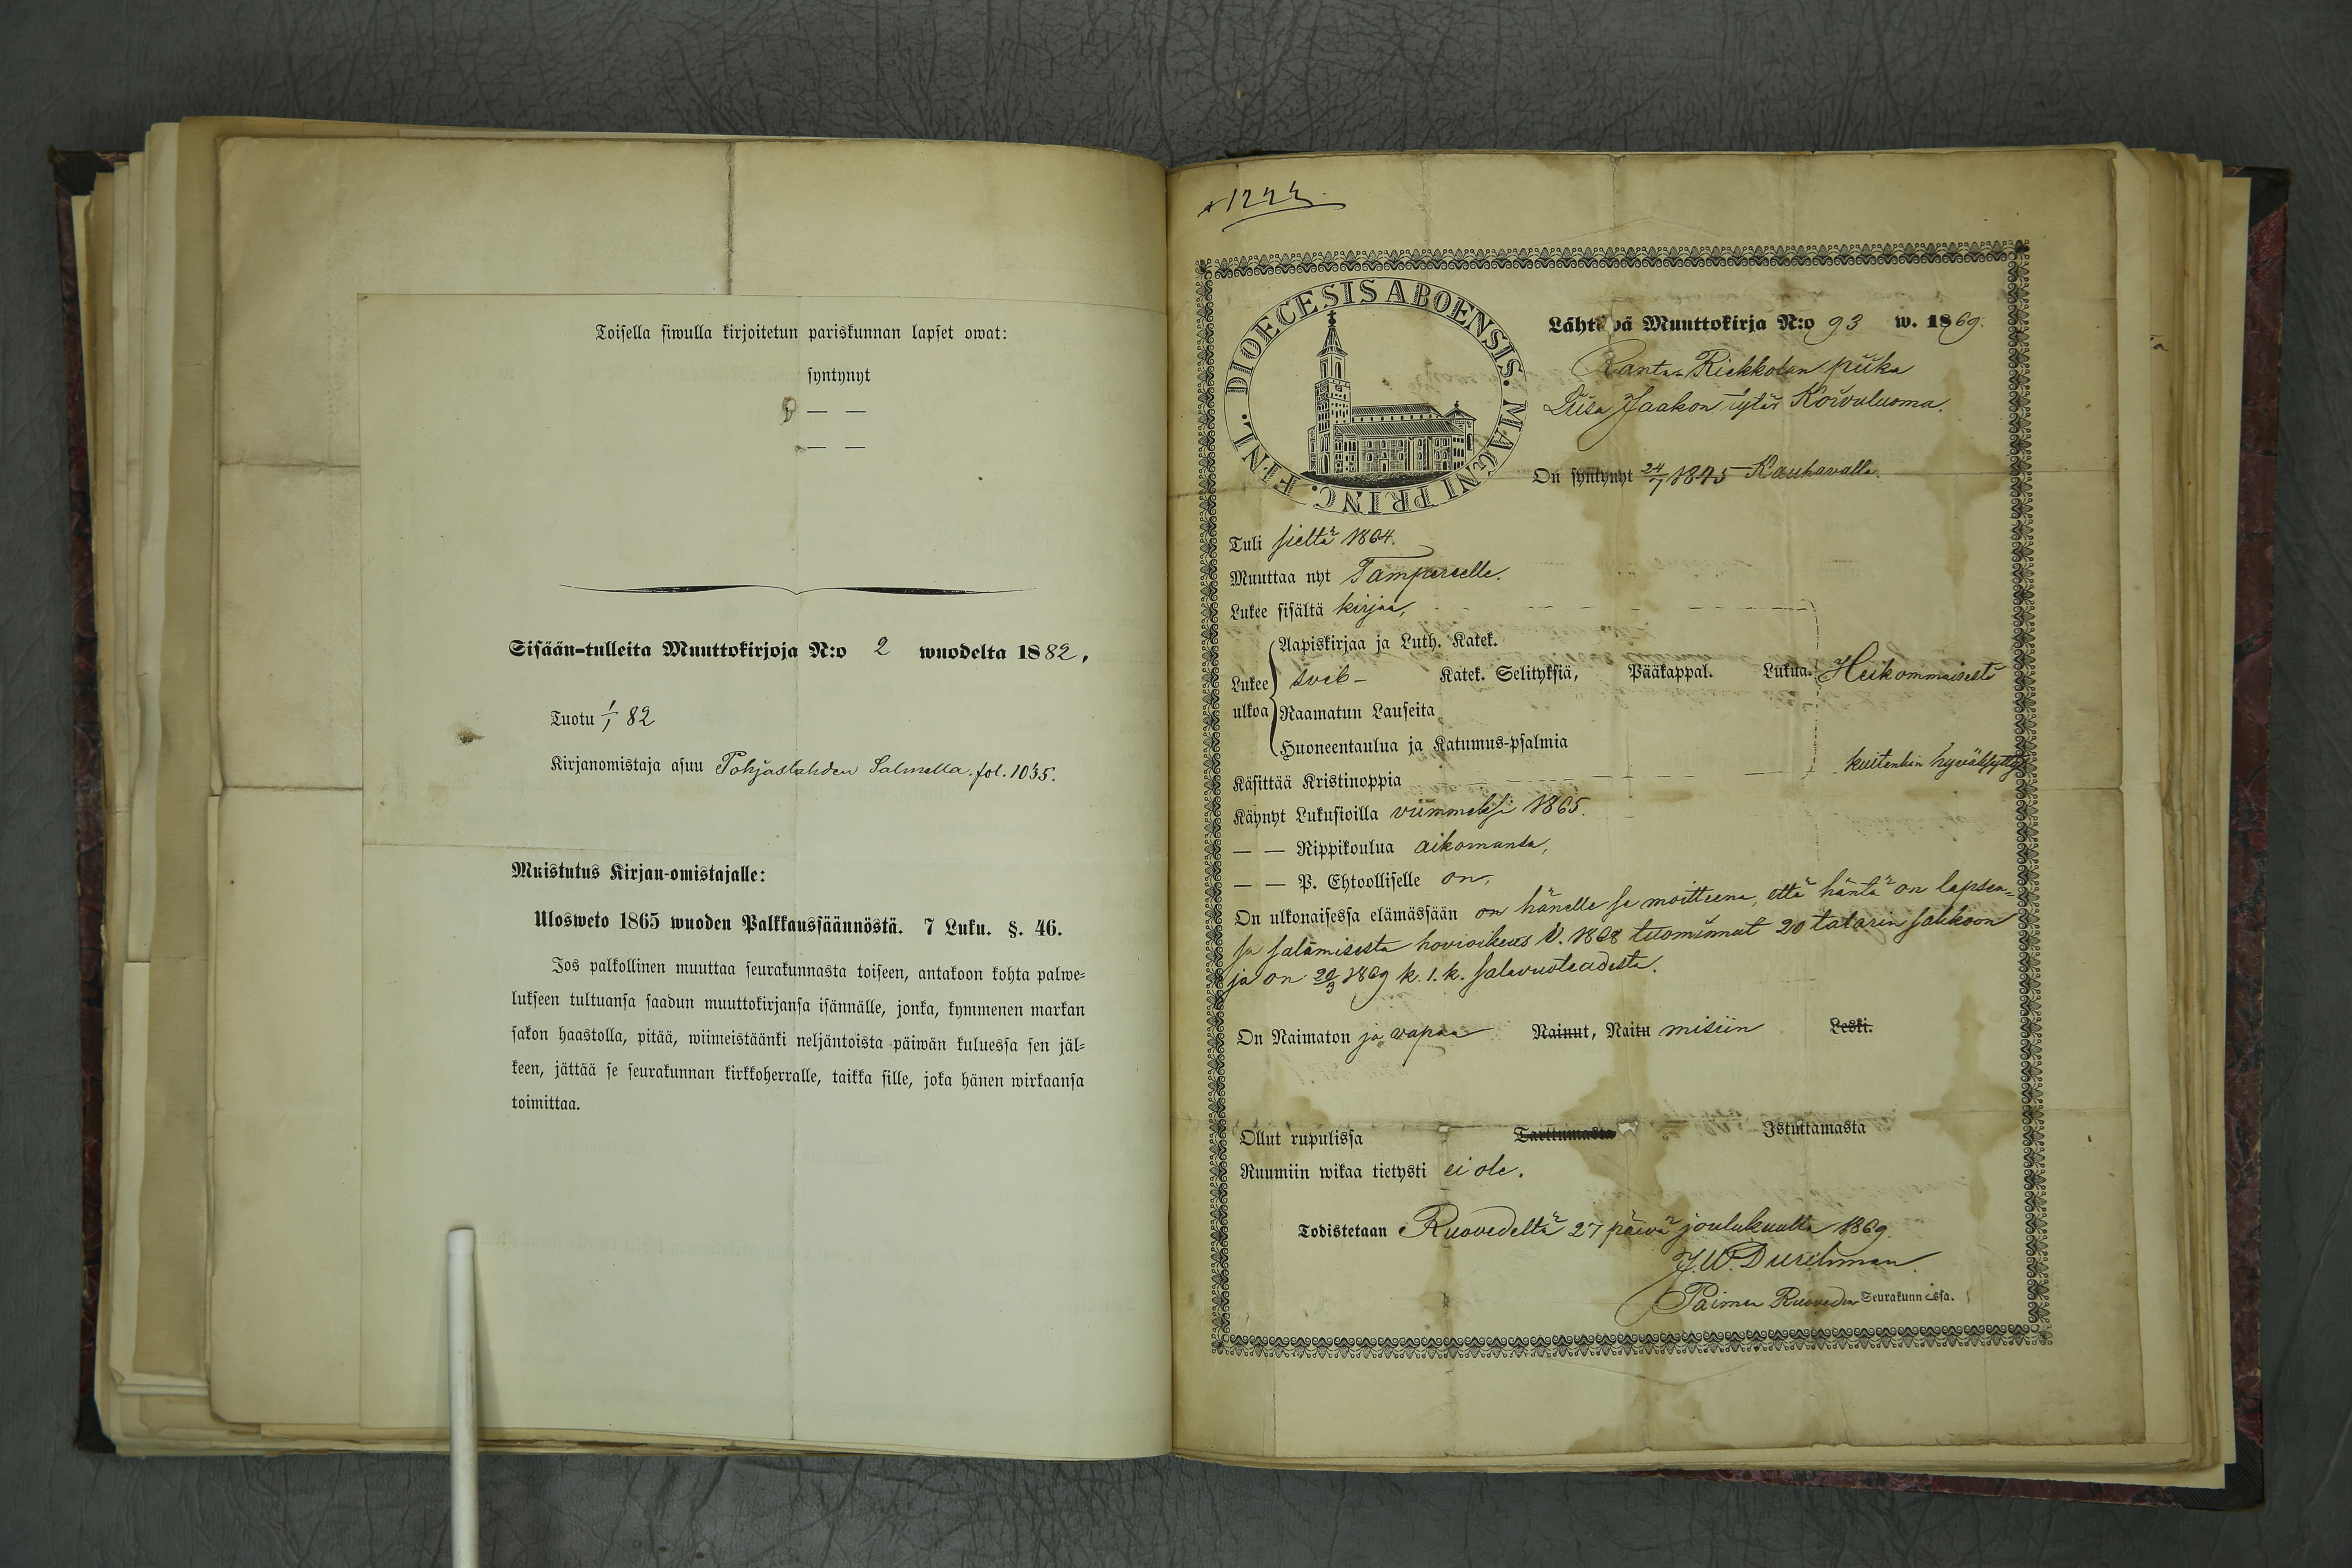 Toisella siwulla kirjoitetun pariskunnan lapset owat:
syntynyt
— —
— —
Sisään-tulleita Muuttokirjoja N:o 2 wuodelta 1882.
Tuotu 1/1 82
Kirjanomistaja asuu Pohjaslahden Salmella. fol. 1035.
Muistutus Kirjan-omistajalle:
Ulosweto 1865 wuoden Palkkaussäännöstä. 7 Luku. §. 46.
Jos palkollinen muuttaa seurakunnasta toiseen, antakoon kohta palwe-
lukseen tultuansa saadun muuttokirjansa isännälle, jonka, kymmenen markan
sakon haastolla, pitää, wiimeistäänki neljäntoista päiwän kuluessa sen jäl-
keen, jättää se seurakunnan kirkkoherralle, taikka sille, joka hänen wirkaansa
toimittaa.
DIOECESIS ABOENSIS. MAGNI PRINC. FINL.
Lähtewä Muuttokirja N:o 93 w. 1869.
Ranta-Riekkolan piika
Liisa Jaakon tytär Koivuluoma.
On syntynyt 24/7 1845 Kauhavalla.
Tuli sieltä 1864.
Muuttaa nyt Tampereelle.
Lukee sisältä kirjaa,
Aapiskirjaa ja Luth. Katek.
Lukee ulkoa Katek. Selityksiä, Pääkappal. Lukua. Heikommaisesti
Raamatun Lauseita
Huoneentaulua ja Katumus-psalmia
Käsittää Kristinoppia kuitenkin hyväksytty
Käynyt Lukusioilla viimmeksi 1865.
— — Rippikoulua aikomansa,
— — P. Ehtoolliselle on,
On ulkonaisessa elämässään on hänelle se moitteena, että häntä on lapsen-
sa salamisesta hovioikeus v. 1868 tuominnut 20 talarin sakkoon
ja on 20/3 1869 k. l. k. salavuoteudesta.
On Naimaton ja vapaa Nainut, Naitu misiin Leski.
Ollut rupulissa Tarttumasta Istuttamasta
Ruumiin wikaa tietysti ei ole.
Todistetaan Ruovedeltä 27 päivä joulukuulla 1869.
J.W. Durchman
Paimen Ruoveden Seurakunnissa.